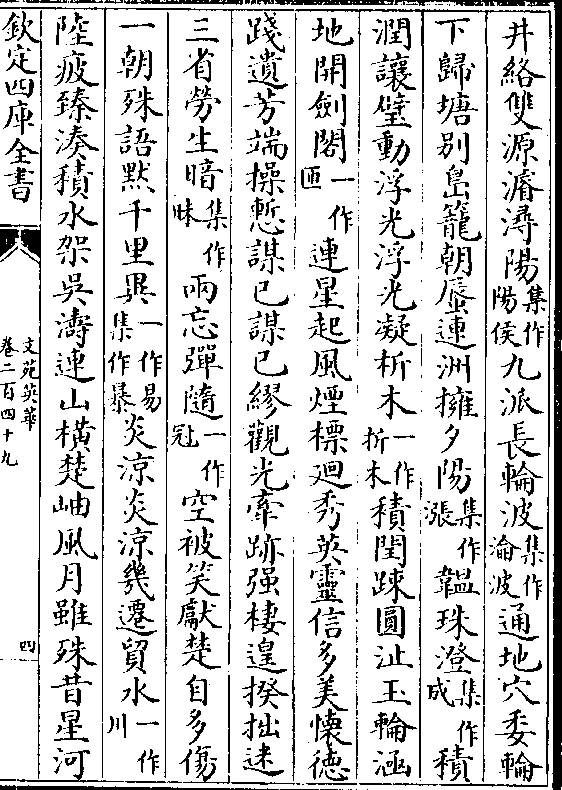 井絡雙源濬潯陽集作陽侯九派長輪波集作淪波通地穴委輪
下歸塘别島籠朝蜃連洲擁夕陽集作漲韞珠澄集作成積
潤讓璧動浮光浮光凝析木一作折木積閏踈圓沚玉輪涵
地開劍閣一作匣連星起風煙標廻秀英靈信多美懐徳
踐遺芳端操慙謀已謀已繆觀光牽跡强棲遑揆拙迷
三省勞生暗集作昧兩忘彈隨一作冠空被笑獻楚自多傷
一朝殊語黙千里異一作易集作暴炎涼炎涼幾遷貿水一作川
陸疲臻湊積水架吳濤連山横楚岫風月雖殊昔星河
欽定四庫全書
文苑英華
卷二百四十九
四